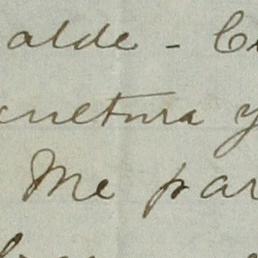 alde - C
cultura y
Me par